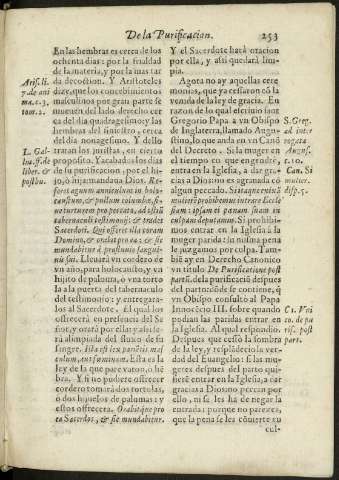 De la Purificacion. 253
En las hembras es cerca de los
ochenta dias: por la frialdad
de la materia, y por la mas tar
da decoction. Y Aristoteles
dize, que los concebimientos
masculinos por gran parte se
mueven del lado derecho cer
ca del dia quadragesimo: y las
hembras del siniestro, cerca
del dia nonagesimo. Y dello
tratan los juristas, en cierto
proposito. Y acabados los dias
de su purificacion, por el hi-
jo, ò hija: mandava Dios.
agnum anniculum in holo-
caustum, & pullum columbæ, si-
ue turturem pro peccato, ad ostiū
tabernaculi testimonij: & tradet
Sacerdoti. Qui offeret illa coram
Domino, & orabit pro ea: & sic
mundabitur à profluuio sangui-
nis sui. Llevarà vn cordero de
vn año, para holocausto, y vn
hijito de paloma, ò vna torto
la a la puerta del tabernaculo
del testimonio: y entregara-
los al Sacerdote. El qual los
ofrecerà en presencia del Se
ñor, y orarà por ella: y assi se-
rà alimpiada del fluxo de su
sangre. Ista est lex parientis mas
culum, aut fœminam. Esta es la
ley de la que pare varon, ò hē
bra. Y si no pudiere ofrecer
cordero tomarà dos tortolas,
ò dos hijuelos de palomas: y
estos offrecera. Orabitque pro
ea Sacerdos, & sic mundabitur.
Aris. li.
7. de ani
ma. c. 3.
tom. 2.
L. Gal-
lus. ff. de
liber. &
posthu.
Y el Sacerdote harà oracion
por ella, y assi quedarà lim-
pia.
Agora no ay aquellas cere
monias, que ya cessaron cō la
venida de la ley de gracia. En
razon de lo qual escriviò san
Gregorio Papa a vn Obispo
de Inglaterra, llamado Augus-
tino, lo que anda en vn Canō
del Decreto. Si la muger en
el tiempo en que engendrè,
entra en la Iglesia, a dar gra-
cias a Dios, no es agravada cō
algun peccado.
mulieri prohibemus intrare Eccle
siam: ipsam ei pœnam suam in
culpam deputamus. Si prohibi-
mos entrar en la Iglesia à la
muger parida: la misma pena
le juzgamos por culpa. Tam-
biē ay en Derecho Canonico
vn titulo De Purificatione post
partū, de la purificació despues
del parto: dōde se contiene, q̃
vn Obispo consultò al Papa
Innocēcio III. sobre quando
podian las paridas entrar en
la Iglesia. Al qual respondio.
Despues que cessò la sombra
de la ley, y resplādecio la ver-
dad del Evangelio: si las mu-
geres despues del parto qui-
sierē entrar en la Iglesia, a dar
gracias a Dios: no peccan por
ello, ni se les ha de negar la
entrada: porque no parezca,
que la pena se les cōuierte en
cul-
S. Greg.
ad inter
rogata
Augus.
c. 10.
Can. Si
mulier.
disp. 5.
C. 1.
co. de pu
rif. post
part.